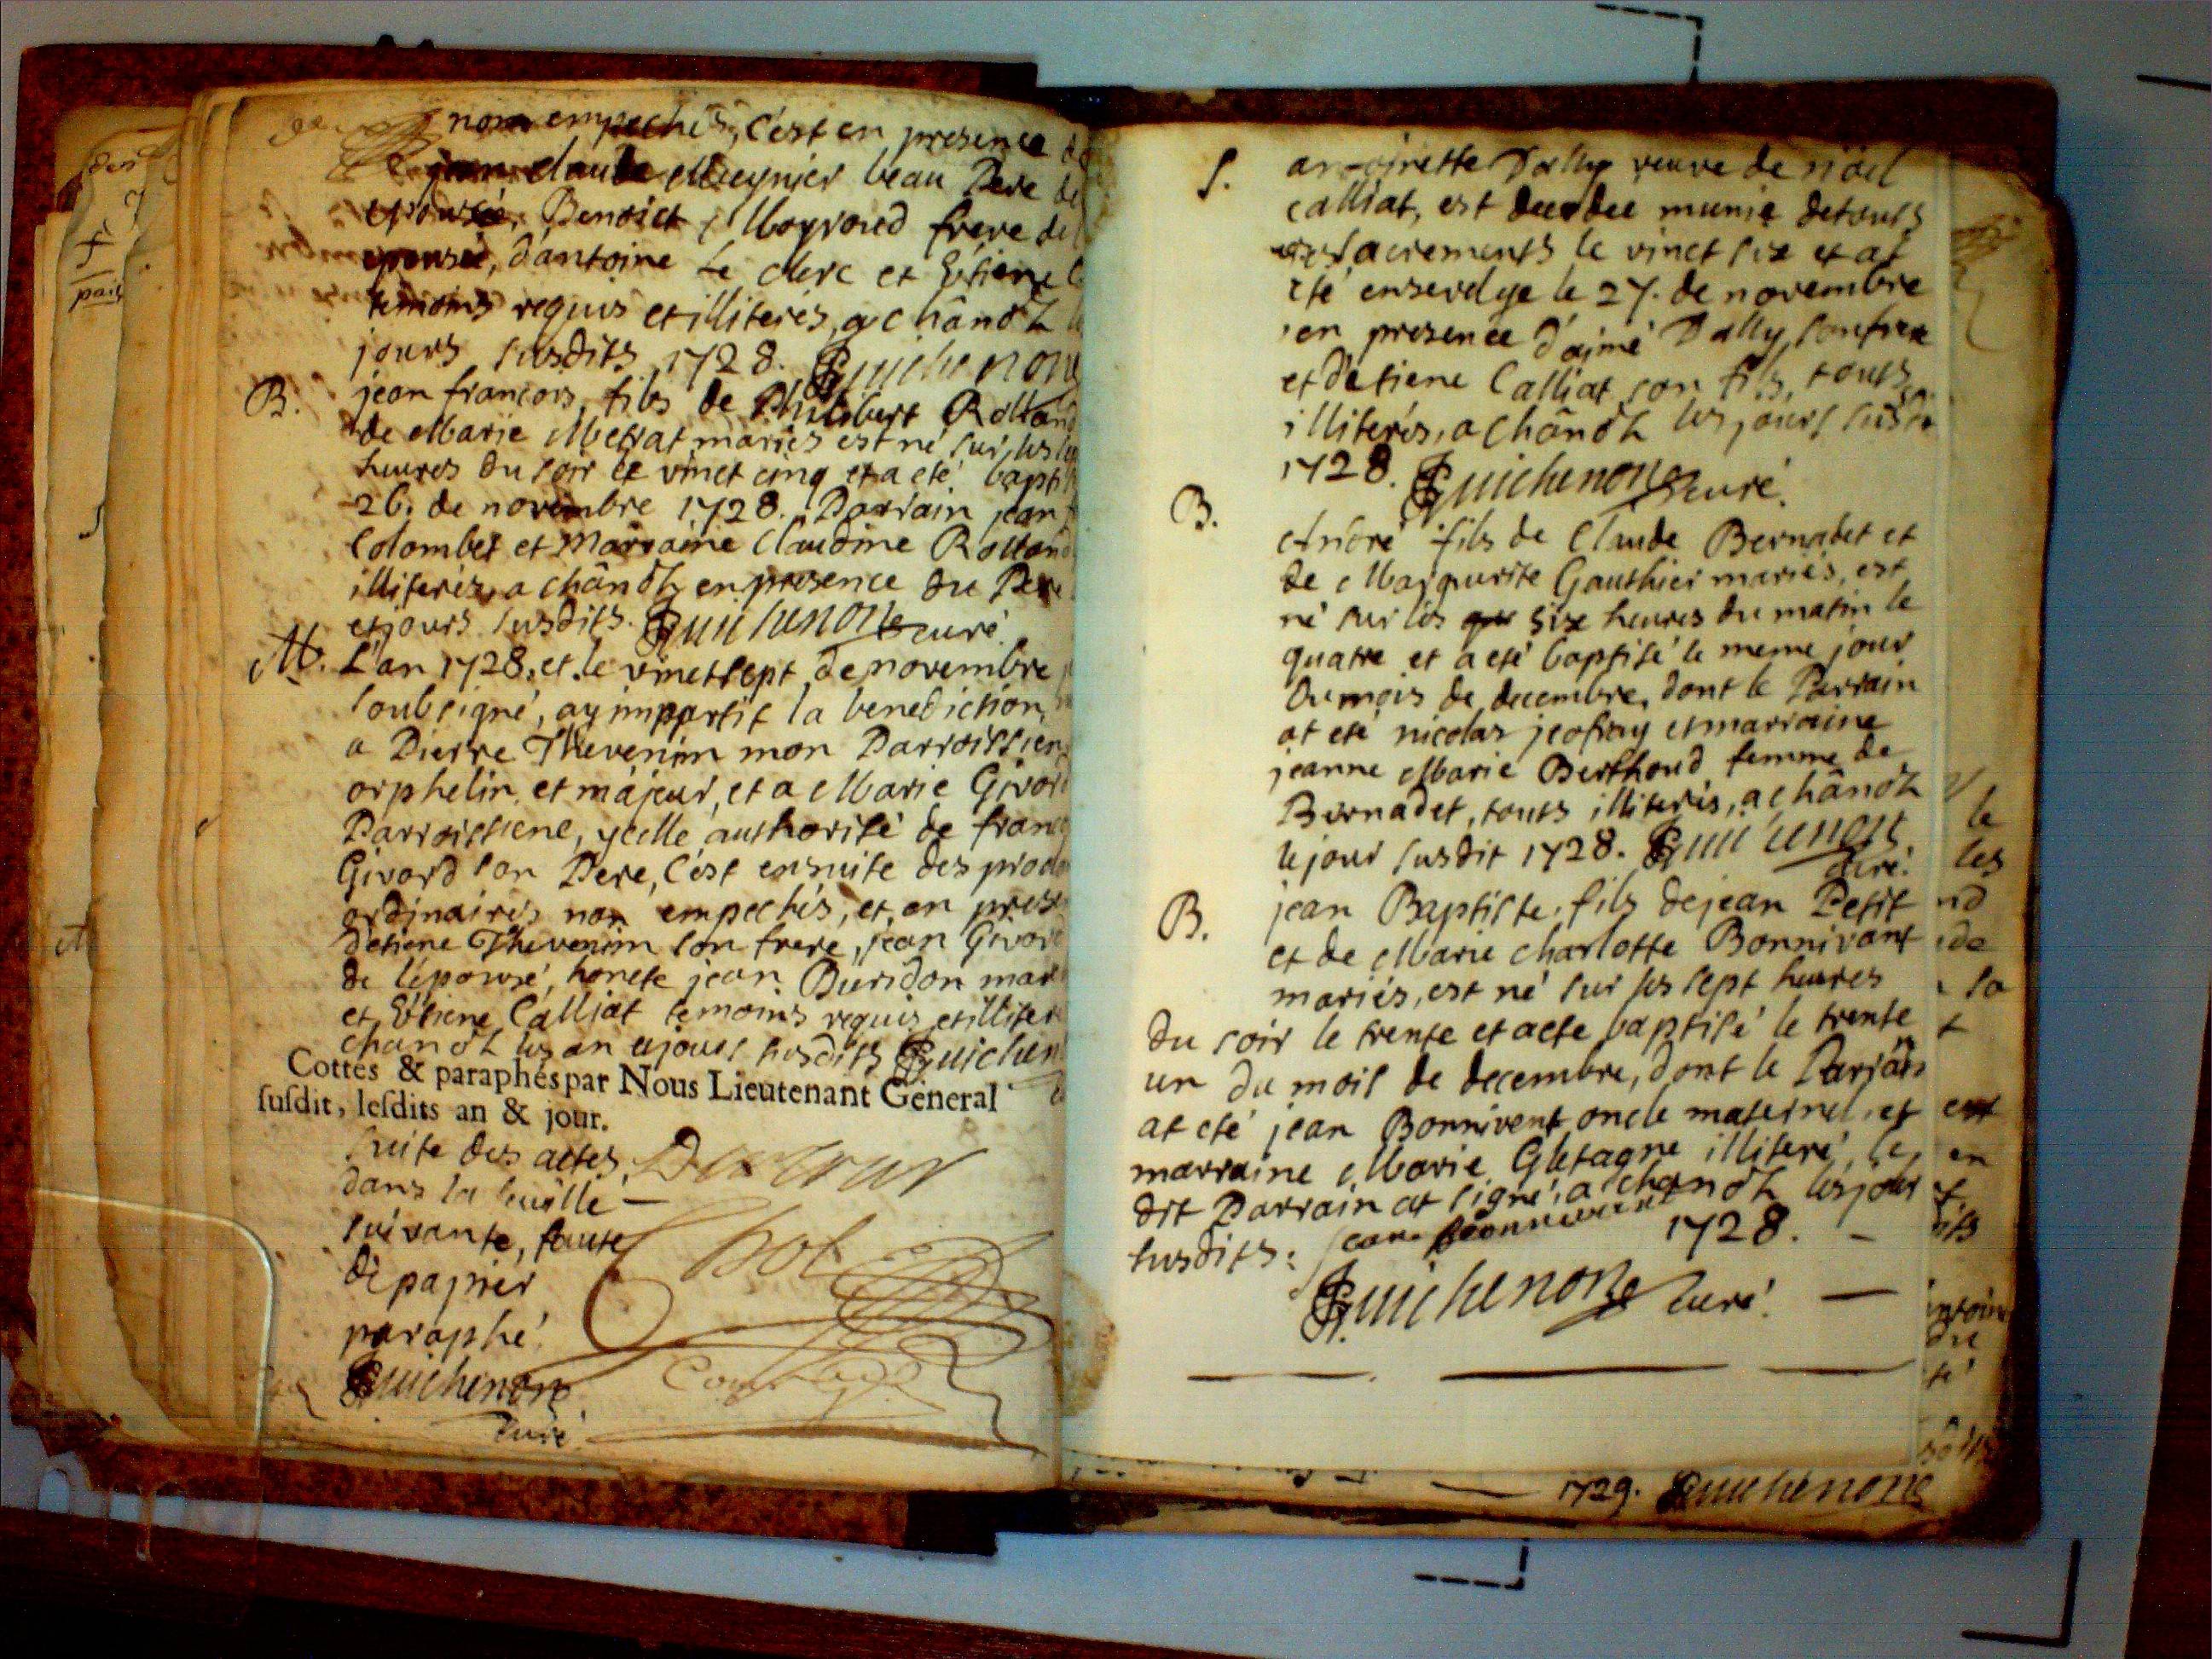 non empechés, c'est en presence de
jean claude Meynier beau Pere de
epousée, Benoict Moyroud frere de
epousée, d'antoine Le clerc et Estiene
temoins requis et illiterés, a chânoz
jours susdits 1728. Guichenon
B. jean francois, fils de Philibert Rolland
de Marie Metrat mariés est né sur les
heures du soir le vinct cinq et a eté bapti
26. de novembre 1728. Parrain jean
Colombet et Marraine Claudine Rolland
illiterés, a chânoz en presence du Pere
et jours susdits. Guichenon curé.
M. L'an 1728, et le vinct sept de novembre
soubsigné, ay impartit la benediction
a Pierre Thevenin mon Parroissien
orphelin et májeur, et a Marie Givord
Parroissiene, ycelle authorisé de franc
Givord son Pere, c'est ensuite des procla
ordinaires non empechés, et en prese
d'etiene Thevenin son frere, jean Givord
de l'épousé, honete jean Buridon mar
et Etiene Calliat temoins requis et illiter
chanoz les an et jours susdits Guichen
Cottés & paraphés par Nous Lieutenant General
susdit, lesdits an & jour.
suite des actes
dans la feuille
suivante, faute
de papier
paraphé
Guichenon
curé
S. antoinette Dally veuve de nöel
calliat, est decedee munie de touts
les sacrements le vinct six et at
eté ensevelye le 27. de novembre
en presence d'aimé Dally, son frere
et d'etiene Calliat son fils, touts
illiterés, a chânoz les jours susdits
1728. Guichenon curé.
B. André fils de Claude Bernadet et
de Marguerite Gauthier mariés, est
né sur les six heures du matin le
quatre et a eté baptisé le meme jour
du mois de decembre, dont le Parrain
at eté nicolas jeofray et marraine
jeanne Marie Berthoud femme de
Bernadet, touts illiterés, a chânoz
le jour susdit 1728. Guichenon
curé.
B. jean Baptiste, fils de jean Petit
et de Marie charlotte Bonnivant
mariés, est né sur les sept heures
du soir le trente et a eté baptisé le trente
un du mois de decembre, dont le Parrain
at eté jean Bonnivent oncle maternel, et
marraine Marie Gletagne illiteré, le
dit Parrain at signé, a chanoz les jours
susdits: jean Bonnivant 1728.
Guichenon curé.
1729. Guichenon